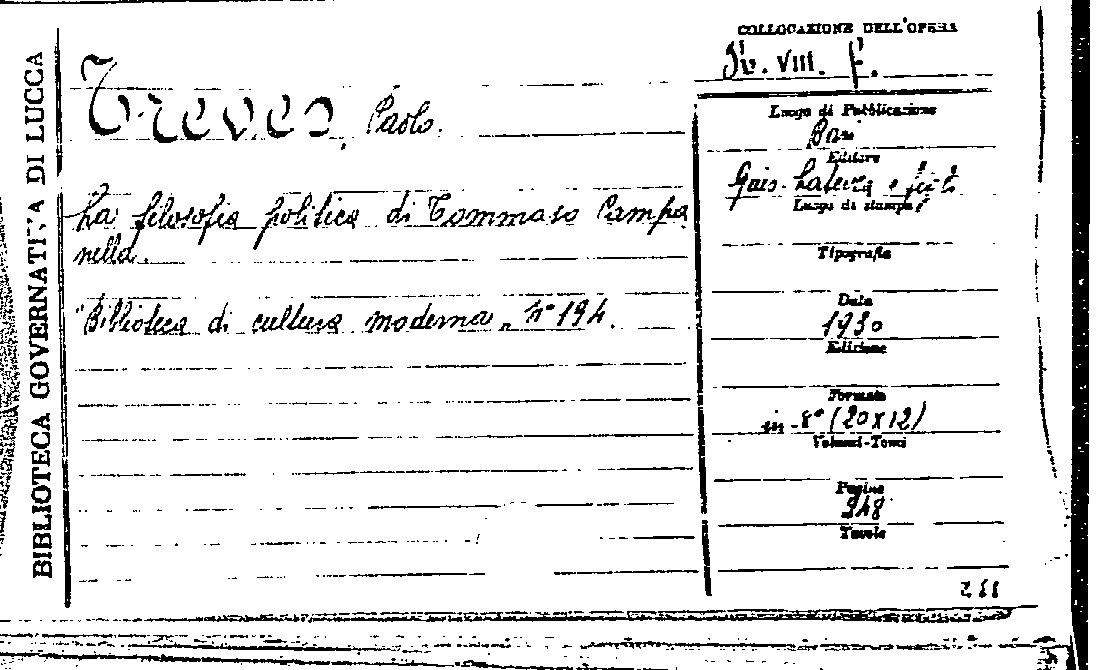 BIBLIOTECA GOVERNATIVA DI LUCCA
COLLOCAZIONE DELL'OPERA
VIII. F.
Treves, Paolo.
La filosofia politica di Tommaso Campa
nella.
"Biblioteca di cultura moderna„ N° 194.
Luogo di Pubblicazione
Bari
Editore
Laterza e figli
Luogo di stampa
Tipografia
Data
1930
Edizione
Formato
in-8° (20x12)
Volumi-Tomi
Pagine
248
Tavole